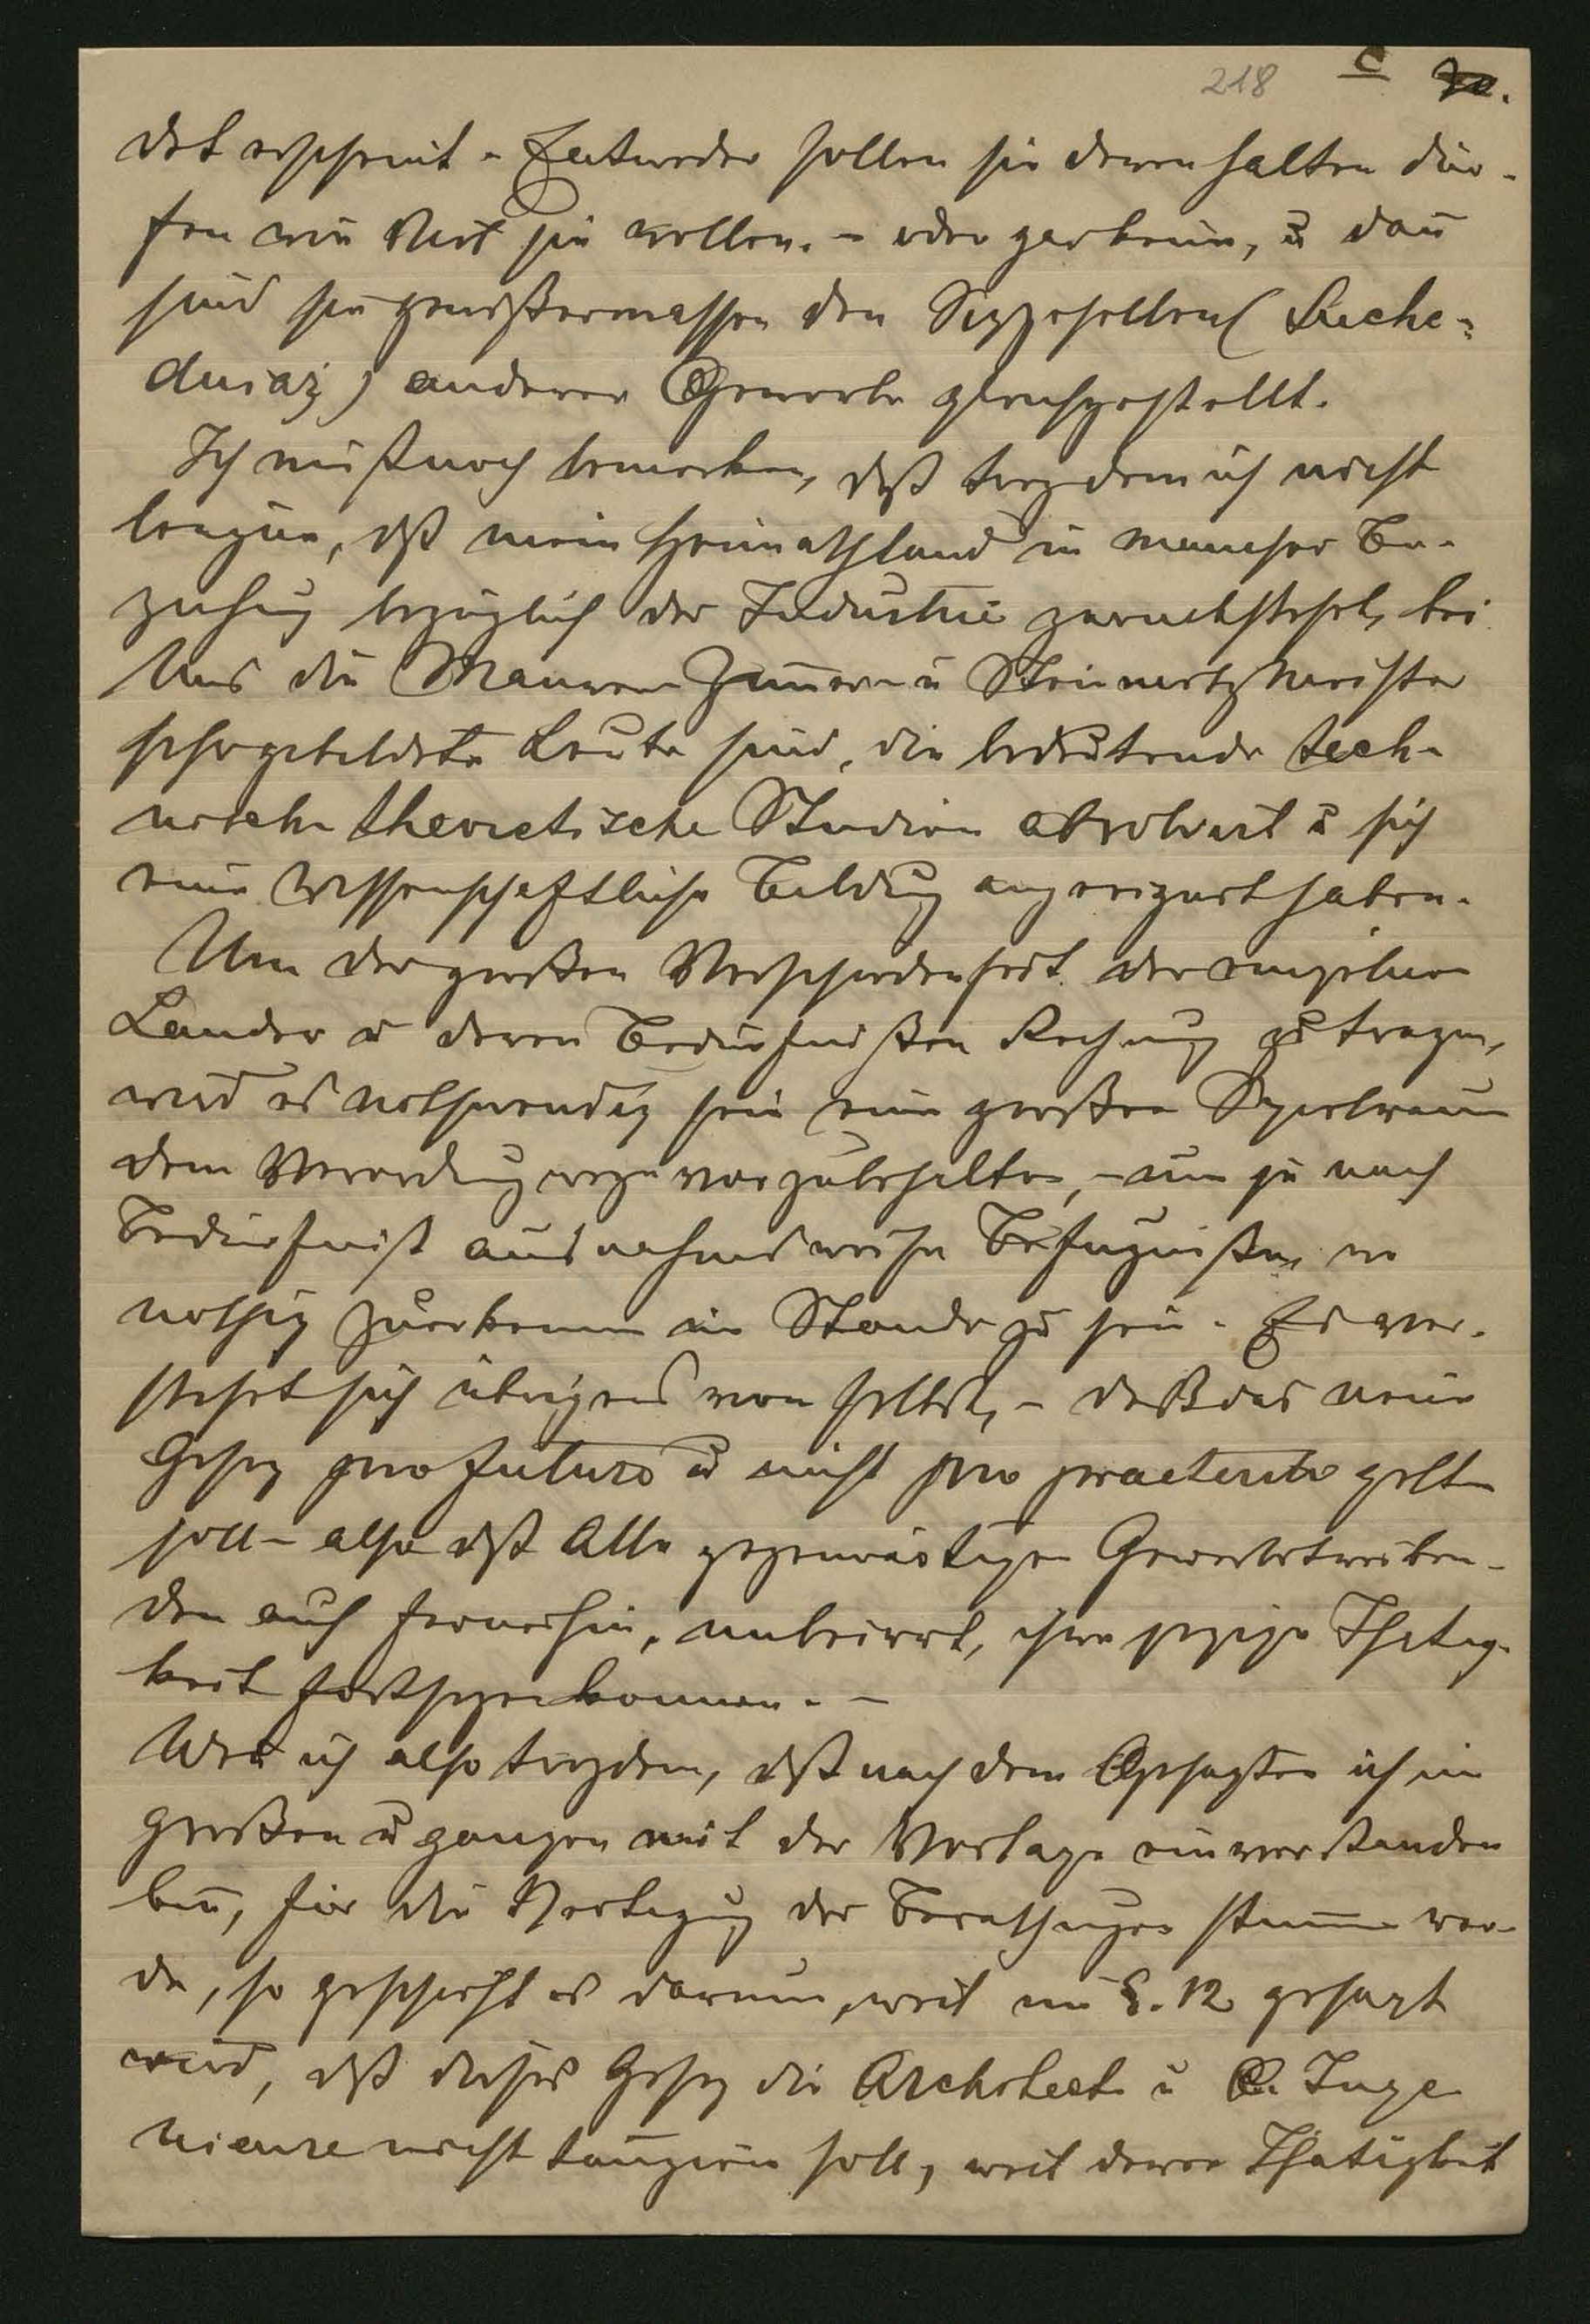 218 c 70.
det erscheint. Entweder sollen sie deren halten dür-
fen wie viel sie wollen. – oder gar keine, u dañ
sind sie gewißermassen den Sizgesellen (Suche-
dniaż) anderer Gewerbe gleichgestellt.
Ich muß noch bemerken, daß trozdem ich nicht
leugne, dß mein Heimathland in mancher Be-
ziehung bezüglich der Industrie zurücksteht, bei
Uns die Maurer Zim̄er u Steinmetzmeister
sehr gebildete Leute sind, die bedeutende tech-
nische theoretische Studien absolvirt u sich
eine wissenschaftliche Bildug angeeignet haben.
Um der großen Verschiedenheit der einzelnen
Länder u deren Bedürfnißen Rechnug zu tragen,
wird es nothwendig sein eine großen Spielraum
dem Verordnugwege vorzubehalten, – um je nach
Bedürfniß ausnahmsweise Befugniße wo
nothig zuerkennen im Stande zu sein. Es ver-
steht sich übrigens von selbst, – daß das neue
Gesez pro futuro u nicht pro praeterito gelten
soll – also dß Alle gegenwärtigen Gewerbetreiben-
den auch fernerhin, unbeirrt, ihre jezige Thätig-
keit fortsezen konnen. –
Wen̄ ich also trozdem, dß nach dem Gesagten ich im
großen u ganzen mit der Vorlage einverstanden
bin, für die Vertagug der Berathugen stim̄e wer-
de, so geschieht es darum, weil im §. 12 gesagt
wird, dß dieses Gesez die Architecte u C. Inge
nieure nicht tangiren soll, weil deren Thätigkeit